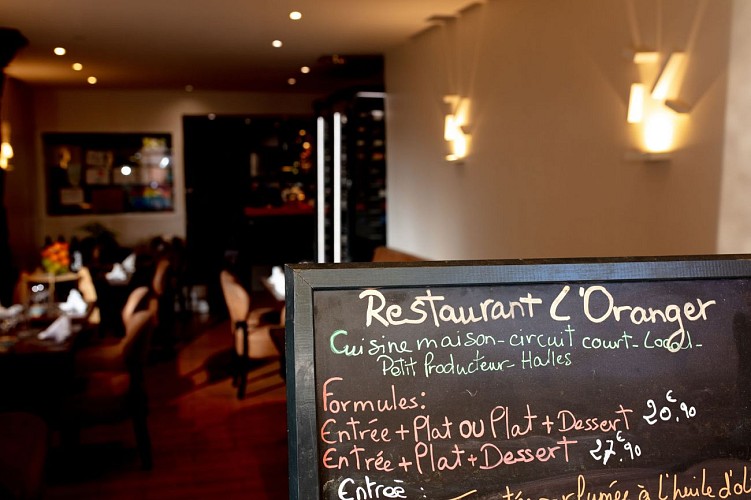 Restaurant L'Oranger
Cuisine maison - circuit court - Local -
Petit Producteur - Halles
Formules:
Entrée + Plat ou Plat + Dessert 20,€90
Entrée + Plat + Dessert 27,€90
Entrée : parfumée à l'huile d'ol